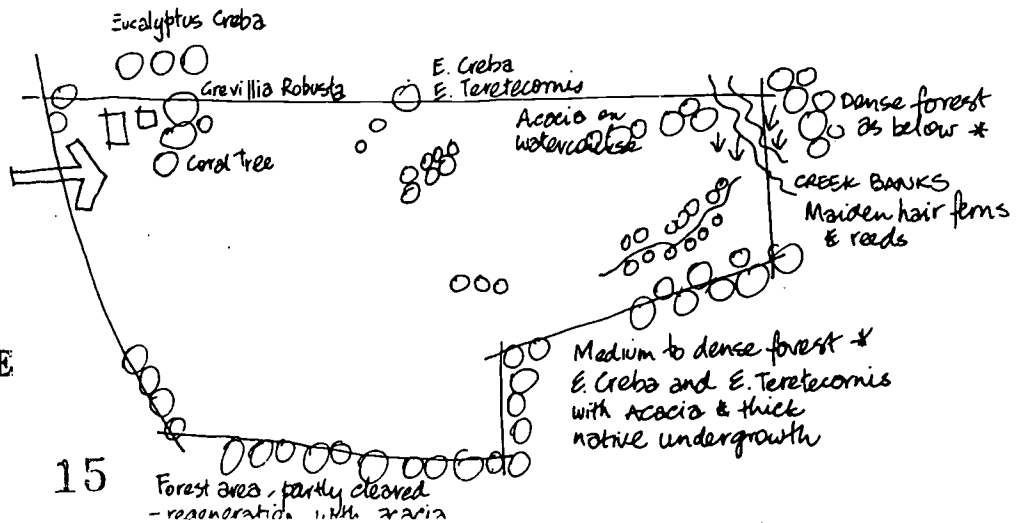 Eucalyptus Creba
Grevillia Robusta
Coral Tree
E. Creba
E. Teretecornis
Acacia on
watercourse
Dense forest
as below *
CREEK BANKS
Maiden hair ferns
& reeds
Medium to dense forest *
E. Creba and E. Teretecornis
with Acacia & thick
native undergrowth
E
15
Forest area, partly cleared
- regeneration with acacia